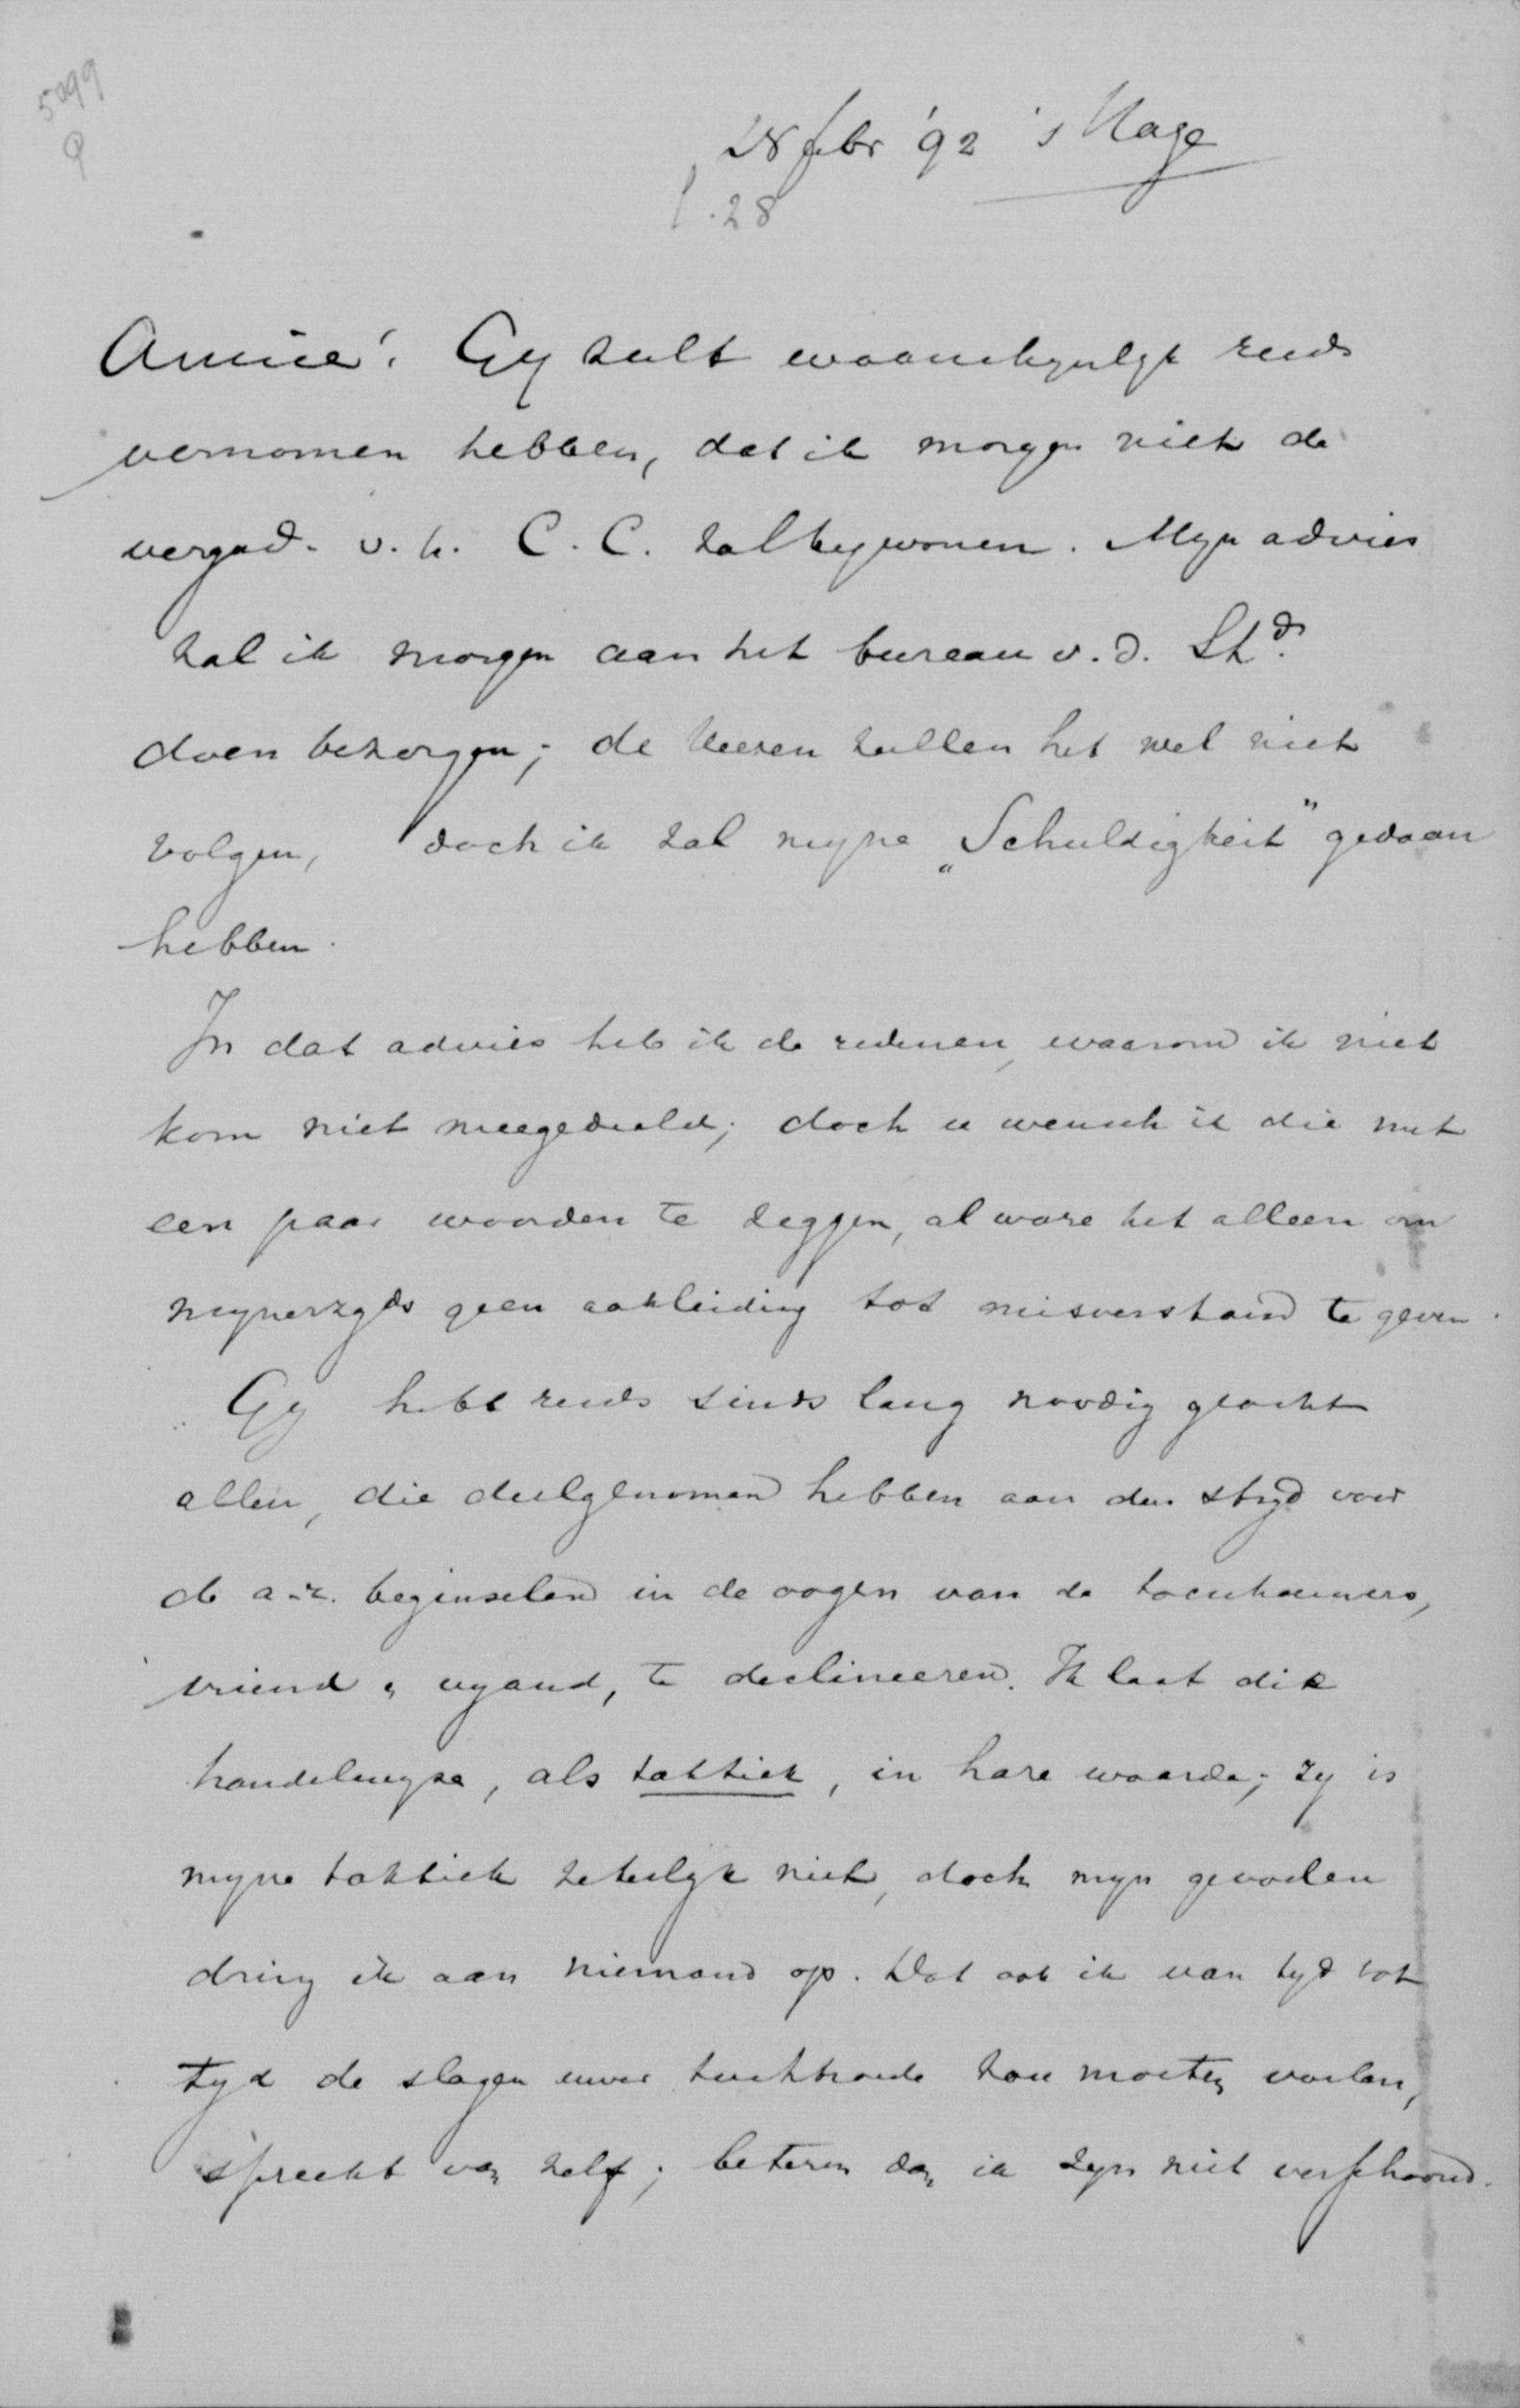 5099
9
28 febr '92 's Hage
28
Amice! Gy zult waarschynlyk reeds
vernomen hebben, dat ik morgen niet de
vergad. v. h. C. C. zal bywonen. Myn advies
zal ik morgen aan het bureau v. d. Std.
doen bezorgen; de Heeren zullen het wel niet
volgen, doch ik zal myne „Schuldigkeit" gedaan
hebben.
In dat advies heb ik de redenen, waarom ik niet
kom niet meegedeeld; doch u wensch ik die met
een paar woorden te zeggen, al ware het alleen om
mynerzyds geen aanleiding tot misverstand te geven.
Gy hebt reeds sinds lang noodig geacht
allen, die deelgenomen hebben aan den stryd voor
de a-r. beginselen in de oogen van de toeschouwers,
vriend & vyand, te declineeren. Ik laat die
handelwyze, als taktiek, in hare waarde; zy is
myne taktiek zekerlyk niet, doch myn gevoelen
dring ik aan niemand op. Dat ook ik van tyd tot
tyd de slagen uwer tuchtroede zou moeten voelen,
spreekt van zelf; beteren dan ik zyn niet verschoond.